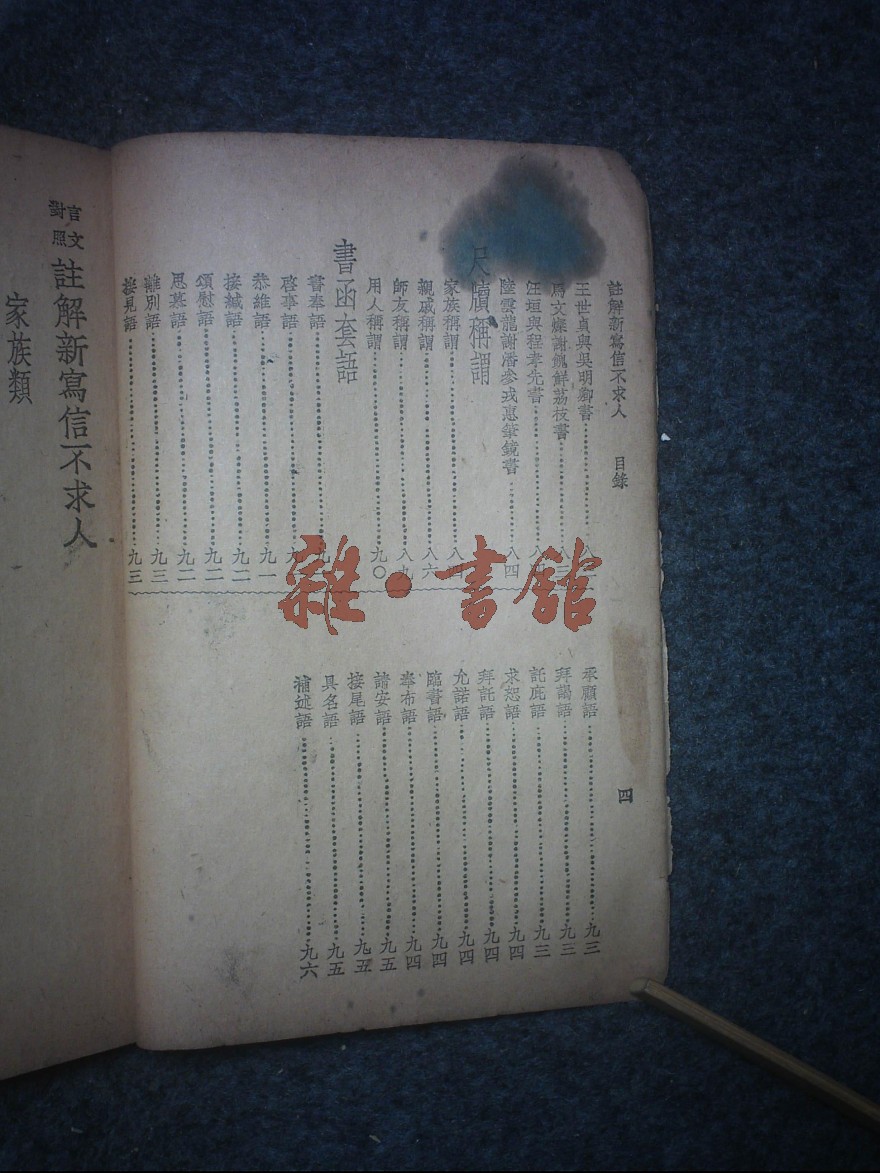 註解新寫信不求人 目錄 四
王世貞與吳明卿書
馬文燦謝餽鮮荔枝書 八三
汪垣與程孝先書
陸雲龍謝潘參戎惠筆鏡書 八四
尺牘稱謂
家族稱謂 八四
親戚稱謂 八六
師友稱謂 八九
用人稱謂 九〇
書函套語
書奉語
啓事語
恭維語 九一
接緘語 九二
頌慰語 九二
思慕語 九二
離別語 九三
接見語 九三
承願語 九三
拜謁語 九三
託庇語 九三
求恕語 九四
拜託語 九四
允諾語 九四
臨書語 九四
奉布語 九四
請安語 九五
接尾語 九五
具名語 九五
補述語 九六
言文對照 註解新寫信不求人
家族類
雜·書館